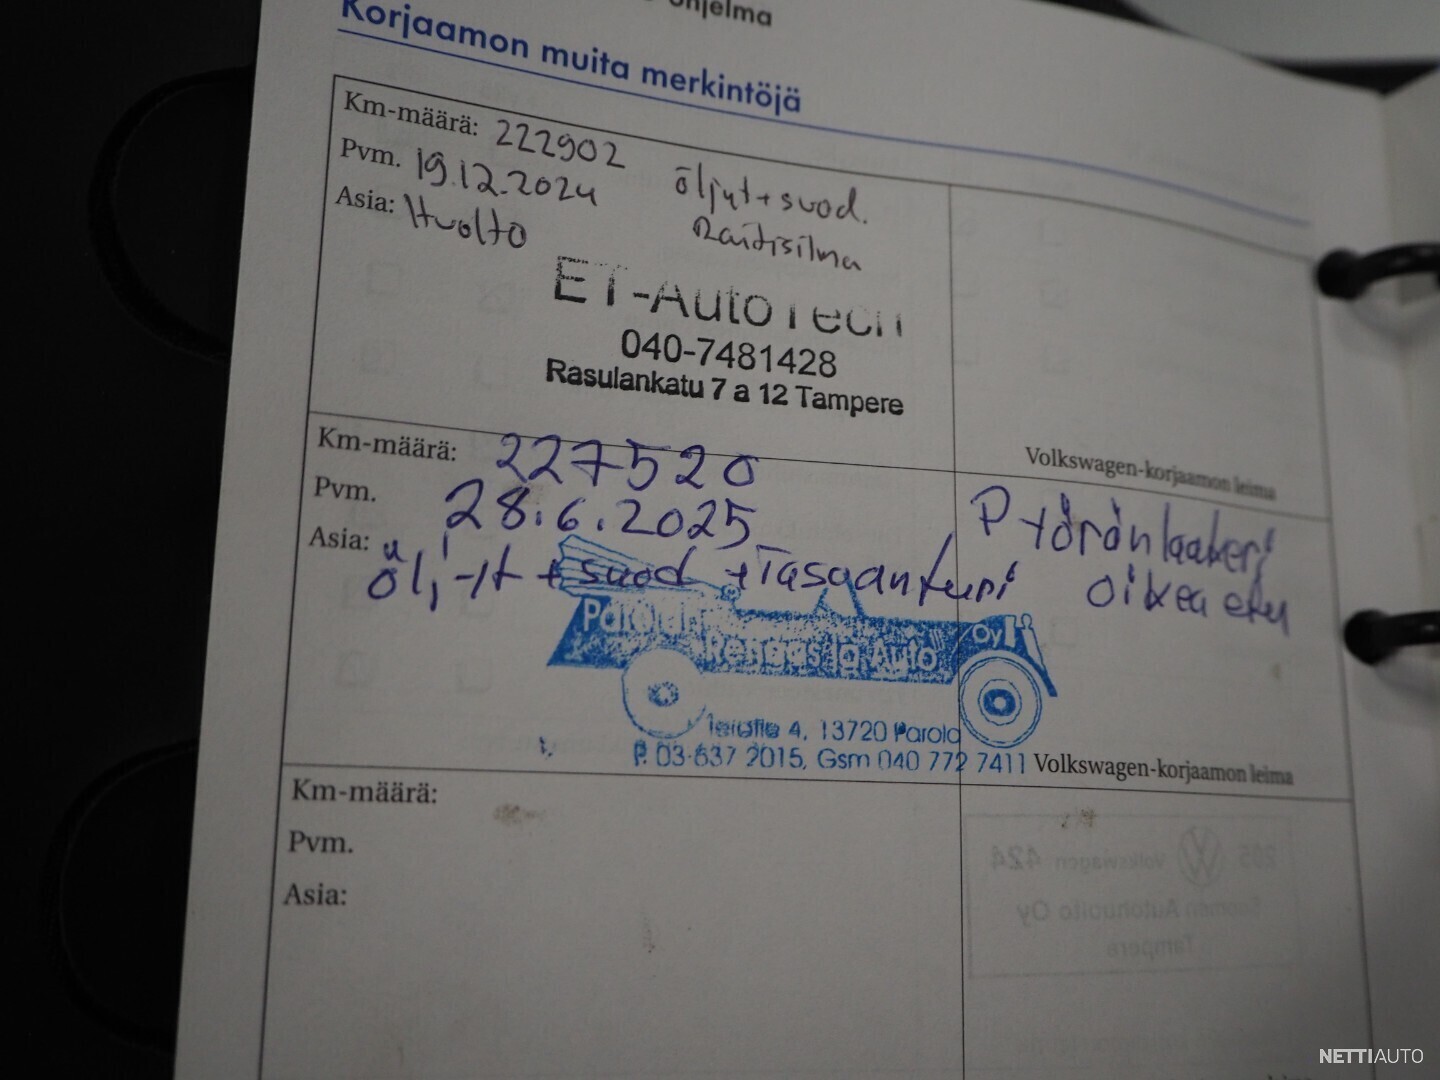 ohjelma
Korjaamon muita merkintöjä
Km-määrä: 222902
Pvm. 19.12.2024
Asia: Huolto
öljyt + suod.
Raitisilma
ET-AutoTech
040-7481428
Rasulankatu 7 a 12 Tampere
Volkswagen-korjaamon leima
Km-määrä: 227520
Pvm. 28.6.2025
Asia: öljyt + suod + Tasaanturi
Pyöränlaakeri
oikea etu
Parolan
Rengas ja Auto Oy
4, 13720 Parola
P. 03-637 2015, Gsm 040 772 7411
Volkswagen-korjaamon leima
Km-määrä:
Pvm.
Asia:
NETTIAUTO